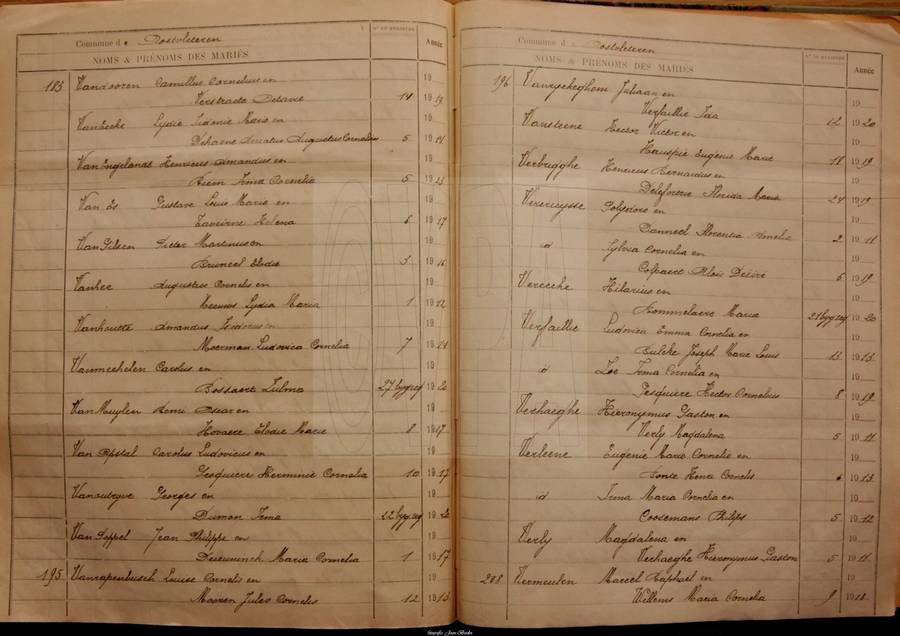 Commune d e Oostvleteren
NOMS & PRÉNOMS DES MARIÉS
Année
183 Vandooren Camillus Cornelius en 19
Verstraete Octavie 14 1919
Vanbecke Lydie Sidonie Marie en 19
Dehaene Amatus Augustus Cornelius 5 1911
Van Engelandt Henricus Amandus en 19
Biem Irma Cornelia 5 1913
Van Es Gustave Louis Marie en 19
Taveirne Helena 6 1917
Van Gilsen Pieter Martinus en 19
Bruneel Elodie 19
Vanhee Augustus Cornelis en 19
Meeuws Lydia Maria 1 1912
Vanhoutte Amandus Isidorus en 19
Moerman Ludovica Cornelia 7 19
Vanmechelen Carolus en 19
Bossaert Zulma 27 1920
Van Muylen Henri Oscar en 19
Hovaere Elodie Marie 8 1917
Van Opstal Carolus Ludovicus en 19
Gesquiere Herminie Cornelia 10 1913
Vanoutryve Georges en 19
Dumon Irma 22 1920
Van Poppel Jean Philippe en 19
Maria Cornelia 1 1917
195 Vanrapenbusch Louise Cornelis en 19
Mooren Jules Cornelis 12 1913
Commune d e Oostvleteren
NOMS & PRÉNOMS DES MARIÉS
Année
196 Vanryckeghem Juliaan en 19
Verfaillie Ida 12 1920
Vansteene Hector Victor en 19
Hauspie Eugenie Marie 18 1919
Verbrugghe Henricus Bernardus en 19
Delefortrie Florida Maria 24 1919
Vercruysse Polydore en 19
Danneel Florentia Amelia 2 1911
id Sylvia Cornelia en 19
Colpaert Aloïs Désiré 6 1919
Vereecke Hilarius en 19
Rommelaere Maria 21 1920
Verfaillie Ludovica Emma Cornelia en 19
Bulcke Joseph Marie Louis 11 1913
id Zoe Irma Cornelia en 19
Tesquiere Hector Cornelius 8 1919
Verhaeghe Hieronymus Gaston en 19
Verly Magdalena 5 1911
Verleene Eugenie Marie Cornelie en 19
Sonte Henri Cornelis 1913
id Irma Maria Cornelia en 19
Coosemans Philips 5 1912
Verly Magdalena en 19
Verhaeghe Hieronymus Gaston 5 1911
208 Vermeulen Marcel Raphael en 19
Willems Maria Cornelia 9 1918